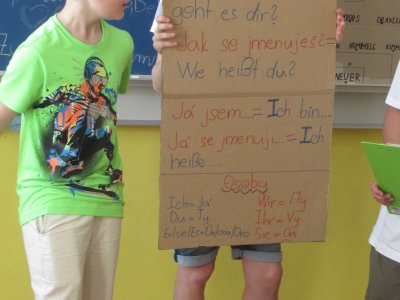 geht es dir?
Jak se jmenuješ? =
Wie heißt du?
Já jsem.... = Ich bin....
Já se jmenuji.... = Ich
heiße.....
Osoby
Ich = Já
Du = Ty
Er/sie/Es = On/ona/Ono
Wir = My
Ihr = Vy
Sie = Oni
DRAXLER
HUMMELS
NEUER